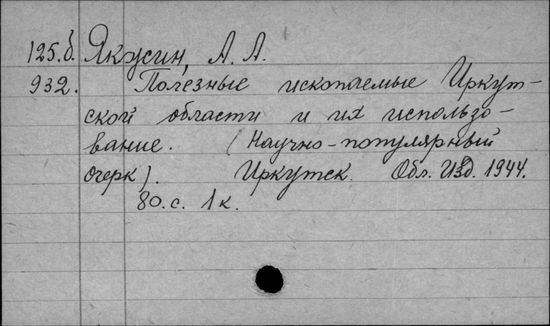 125.б. Якусин, А. А.
932. Полезные ископаемые Иркут-
ской области и их использо-
вание. (Научно-популярный
очерк). Иркутск. Обл. Изд. 1944.
80.с. 1 к.